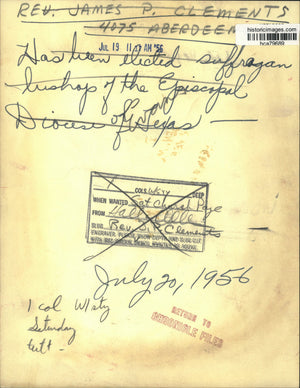 REV. JAMES P. CLEMENTS
4075 ABERDEEN
historicimages.com
hca79689
JUL 19 11 AM '56
Has been elected suffragan
bishop of the Episcopal
Diocese of Texas —
COLS WIDTH DEEP
WHEN WANTED Sat Church Page
FROM
SLUG Rev. J. P. Clements
July 20, 1956
1 col W/sty
Saturday
RETURN TO
CHRONICLE FILES